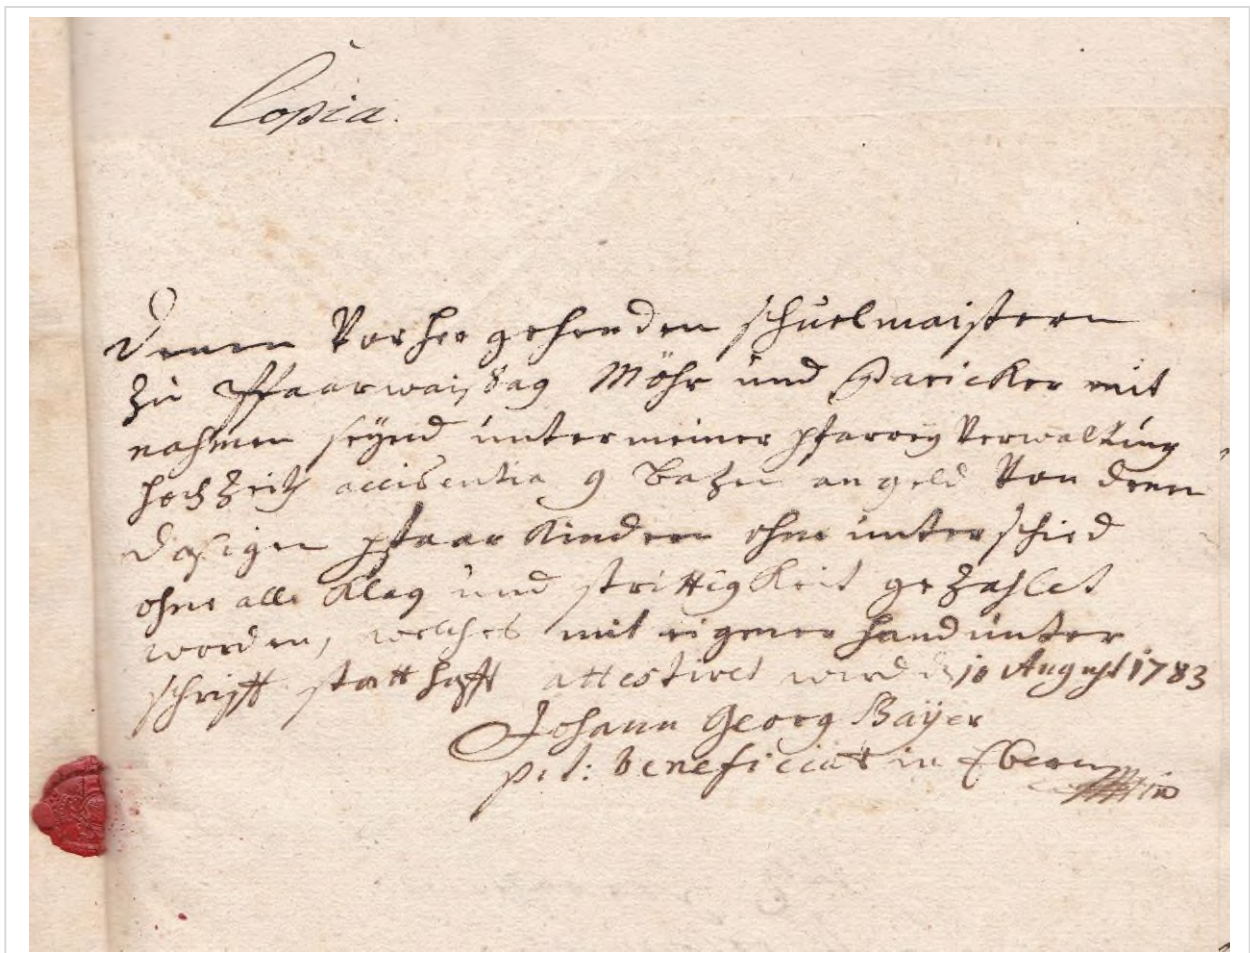 Copia.
Denen Vorher gehenden schuelmaistern
zu Pfaarwaisßag Möhr und Paricker mit
nahmen seynd unter meiner pfarrey Verwaltung
hochzeits accidentia 9 bazen an geld Von denen
dasigen pfaar Kindern ohne unterschied
ohne alle Klag und strittigkeit gezahlet
worden, welches mit eigener hand unter
schrifft statthafft attestiret wird d 10 August 1783
Johann Georg Bayer
p:t: beneficiat in Ebern